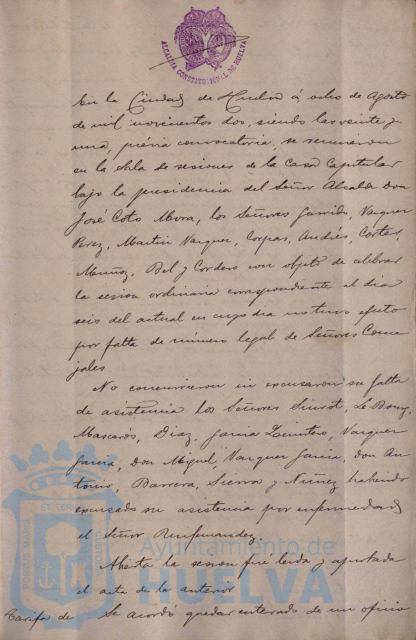 ALCALDIA CONSTITUCIONAL DE HUELVA
En la Ciudad de Huelva á ocho de Agosto
de mil novecientos dos, siendo las veinte y
una, prévia convocatoria, se reunieron
en la Sala de sesiones de la Casa Capitular
bajo la presidencia del Señor Alcalde Don
José Coto Mora, los Señores Garrido, Vazquez
Perez, Martin Vazquez, Corpas, Andrés, Cortés,
Muñoz, Bel y Cordero con objeto de celebrar
la sesion ordinaria correspondiente al dia
seis del actual en cuyo dia no tuvo efecto
por falta de número legal de Señores Conce
jales
No concurrieron ni excusaron su falta
de asistencia los Señores
Mascarós, Diaz, Garcia Quintero, Vazquez
Garcia, Don Miguel, Vazquez Garcia, Don An
tonio, Barrera, Sierra y Nuñez habiendo
excusado su asistencia por enfermedad
el Señor
Abierta la sesion fue leida y aprobada
el acta de la anterior
Tarifa de Se acordó quedar enterado de un oficio
Ayuntamiento de
HUELVA